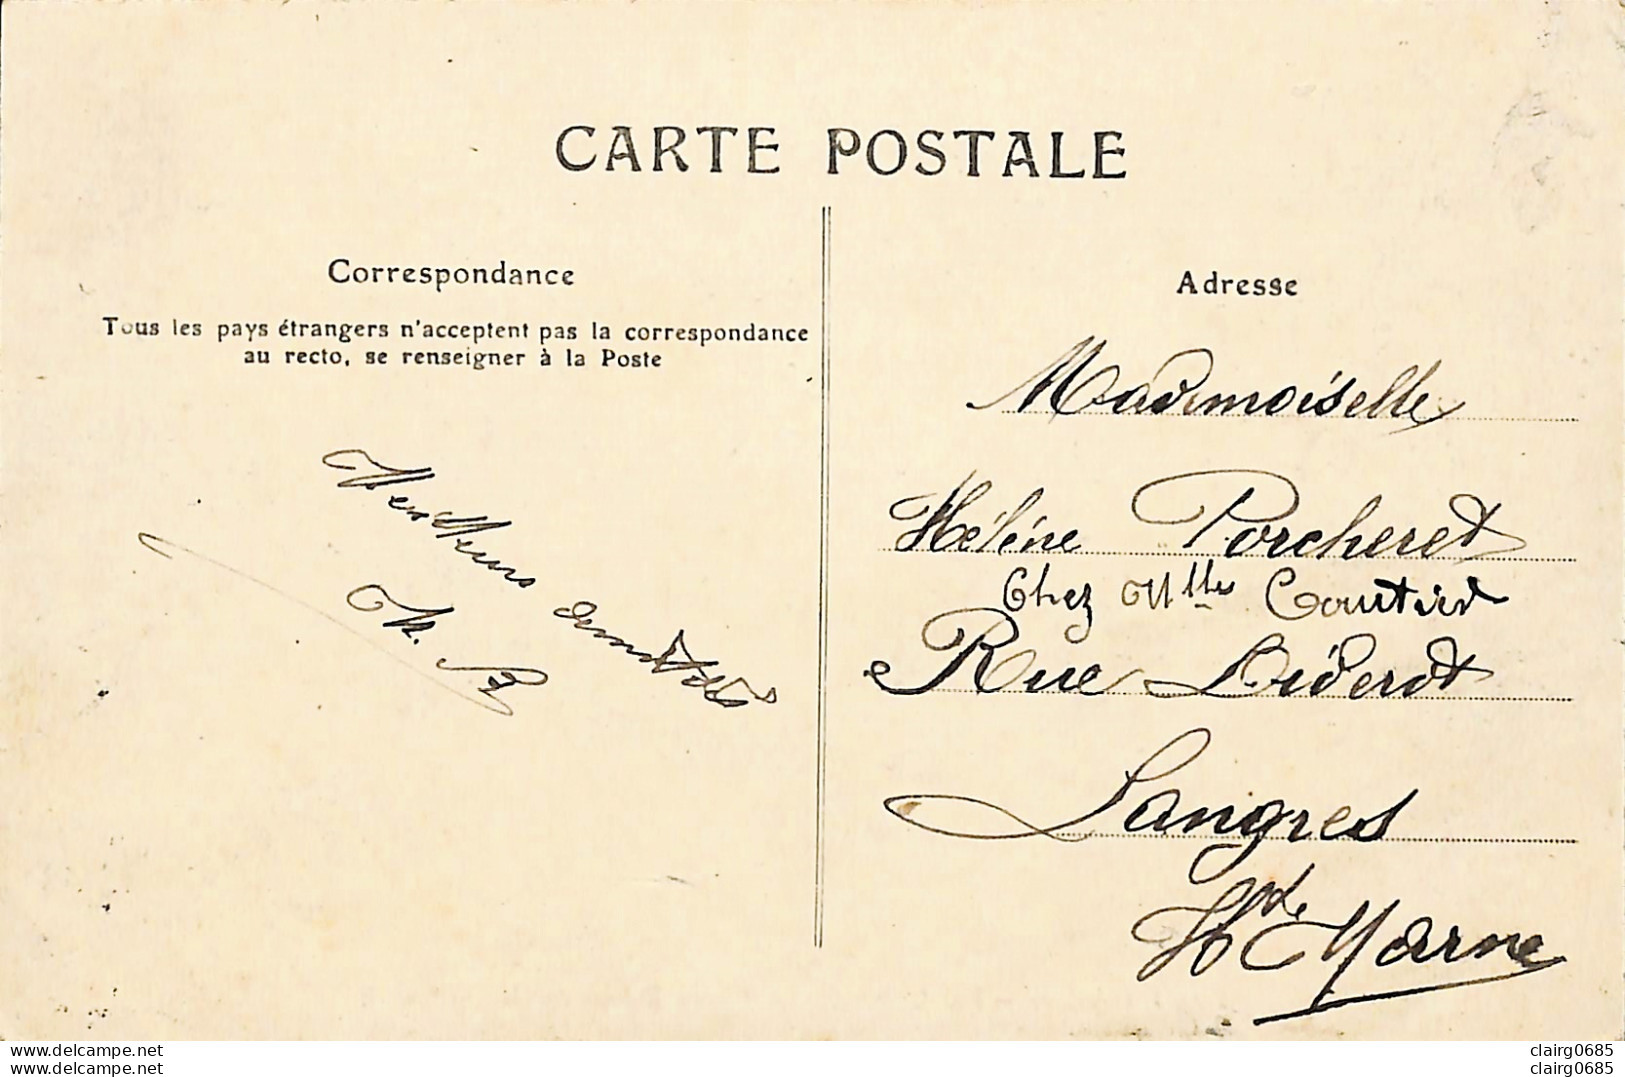 CARTE POSTALE
Correspondance
Tous les pays étrangers n'acceptent pas la correspondance
au recto, se renseigner à la Poste
Meilleurs amitiés
M. B
Adresse
Mademoiselle
Hélène Porcheret
Chez Mlle Coutier
Rue Diderot
Langres
Hte Marne
www.delcampe.net
www.delcampe.net
clairg0685
clairg0685